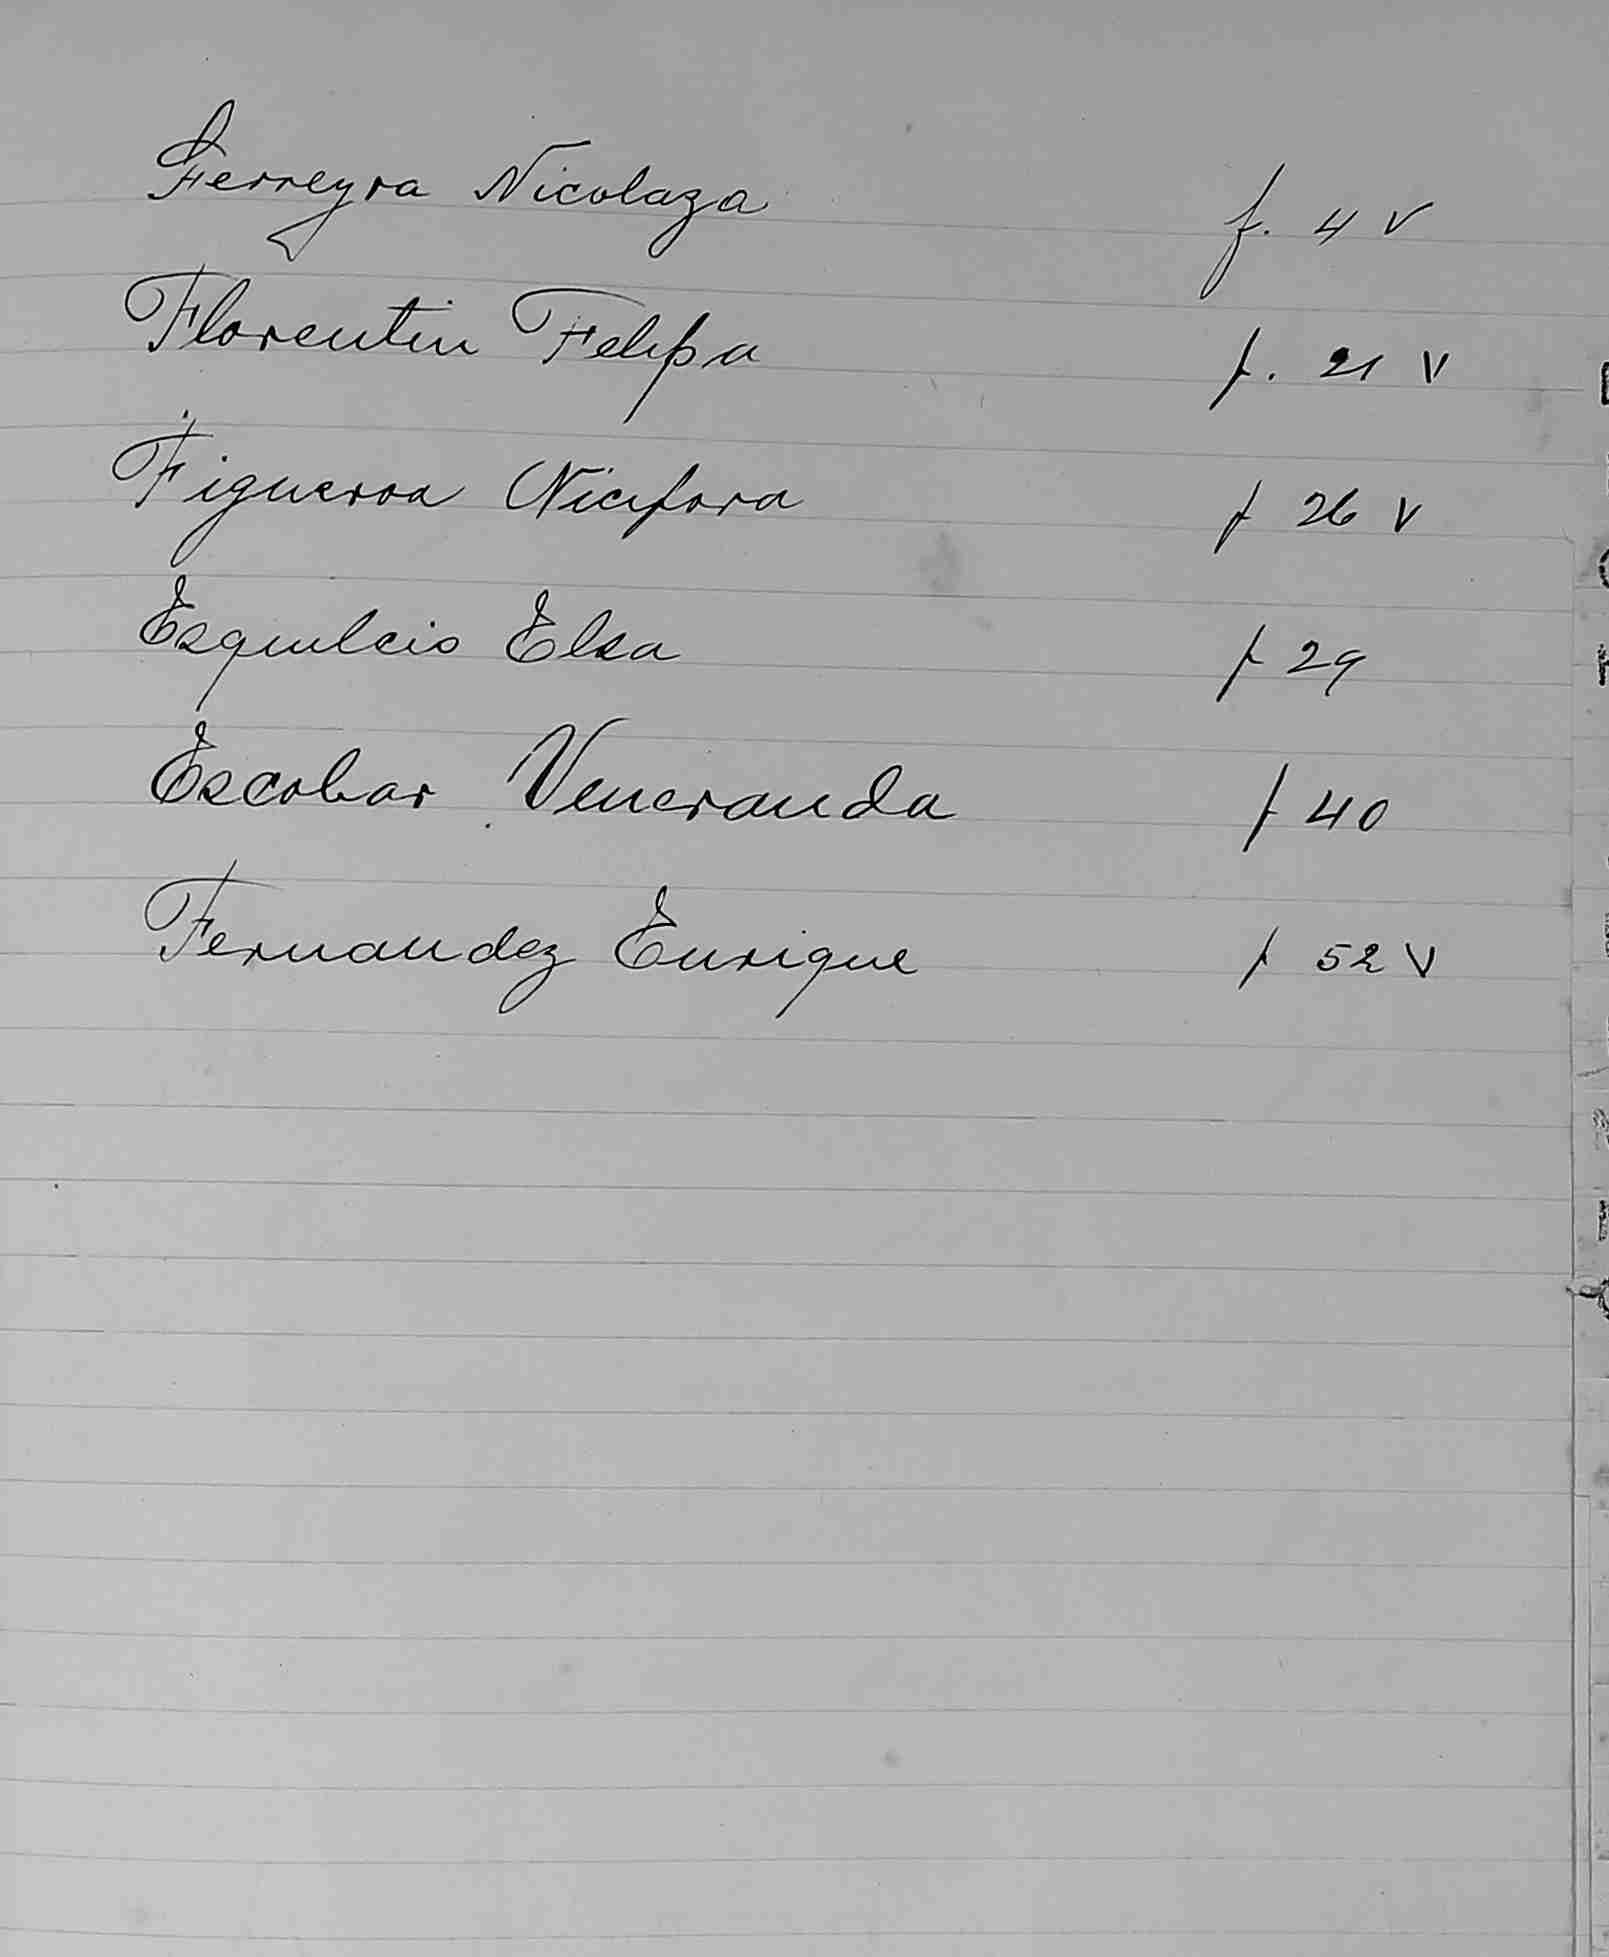 Ferreyra Nicolaza f. 4 v
Florentin Felipa f. 21 v
Figueroa Nicifora f 26 v
Elsa f 29
Escobar Veneranda f 40
Fernandez Enrique f 52 v